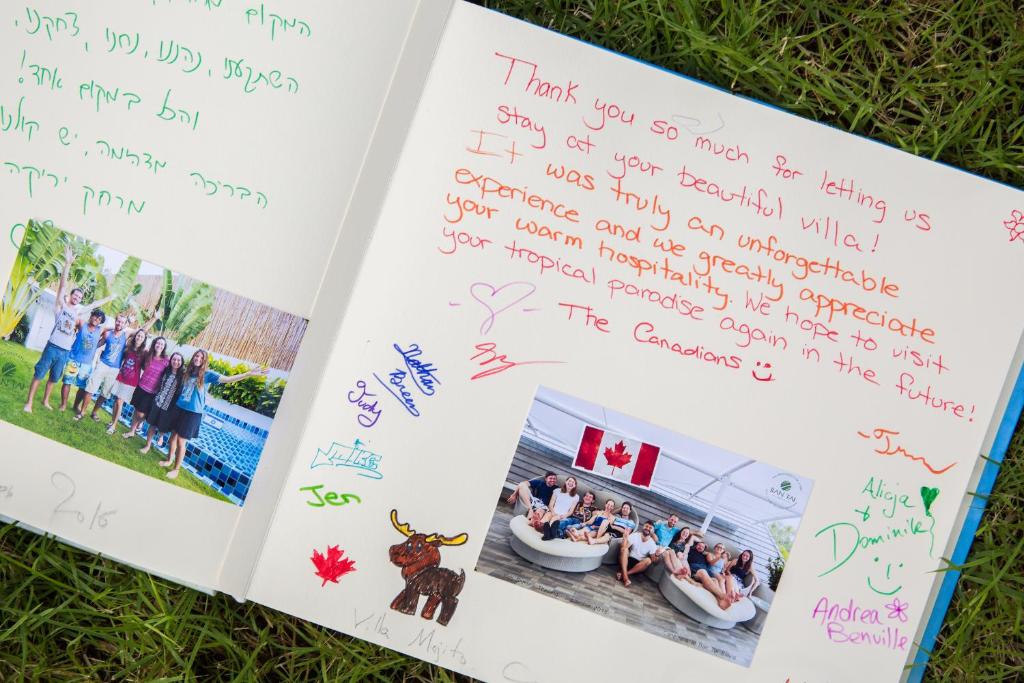 המקום
השתקענו, נהננו, נחנו, צחקנו,
והכל במקום אחד!
הבריכה מדהימה, יש קאלנו
מרחק יריקה
2016
Thank you so much for letting us
stay at your beautiful villa!
It was truly an unforgettable
experience and we greatly appreciate
your warm hospitality. We hope to visit
your tropical paradise again in the future!
The Canadians
Nathan
Breen
Judy
Mike
Jen
Alicja
+
Dominik
Andrea
Benville
BAN TAI
Villa Mojito